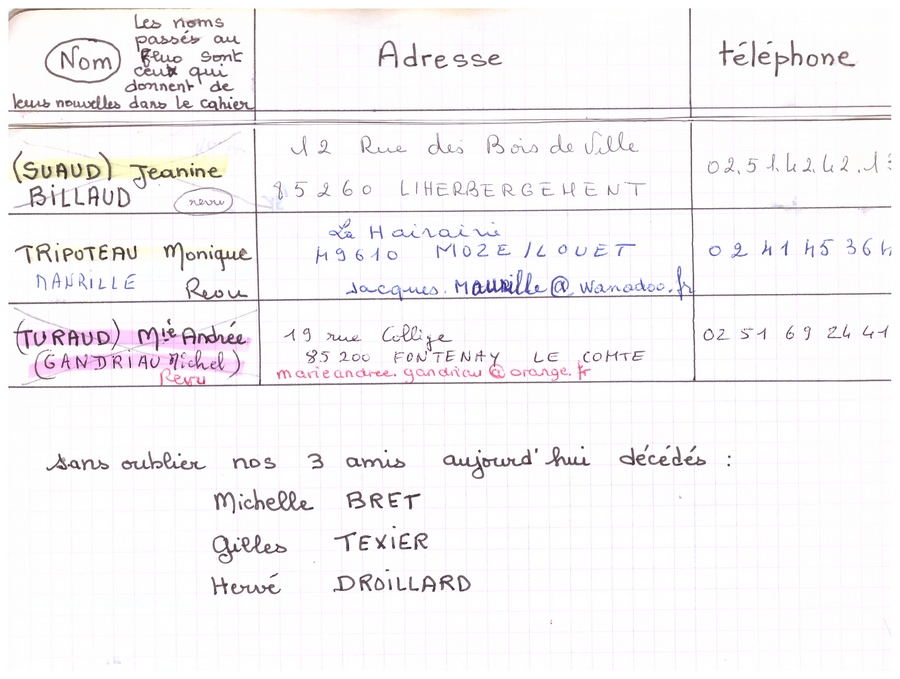 Les noms
passés au
fluo sont
ceux qui
donnent de
leurs nouvelles dans le cahier
Nom
Adresse
téléphone
(SUAUD) Jeanine
BILLAUD
12 Rue des Bois de Ville
85260 LIHERBERGEMENT
02.51.42.42.13
TRIPOTEAU Monique
Revu
La Hairairie
49610 MOZE/LOUET
Jacques.Maurille@wanadoo.fr
02 41 45 36 4
(TURAUD) Mie Andrée
(GANDRIAU Michel)
Revu
19 rue Collige
85200 FONTENAY LE COMTE
marieandree.gandriau@orange.fr
02 51 69 24 41
Sans oublier nos 3 amis aujourd'hui décédés :
Michelle BRET
Gilles TEXIER
Hervé DROILLARD